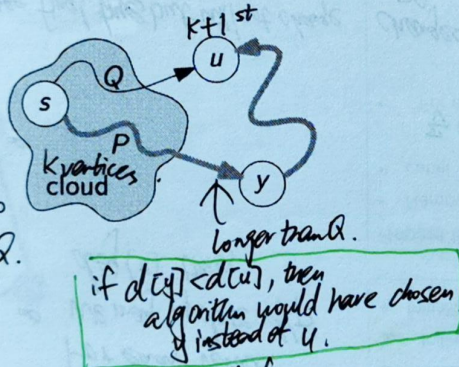 k+1 st
u
Q
s
P
K vertices
cloud
y
longer than Q.
Q.
if d[y]<d[u], then
algorithm would have chosen
y instead of u.